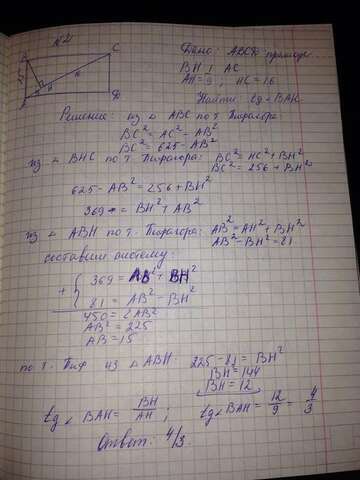 N2
Дано: ABCD прямоуг...
BH ⊥ AC
AH = 9 ; HC = 16
Найти: tg < BAH
B C
A D
H
9
16
Решение: из △ ABC по т. Пифагора:
BC² = AC² - AB²
BC² = 625 - AB²
из △ BHC по т. Пифагора: BC² = HC² + BH²
BC² = 256 + BH²
625 - AB² = 256 + BH²
369 = BH² + AB²
из △ ABH по т. Пифагора: AB² = AH² + BH²
AB² - BH² = 81
составим систему:
+ { 369 = AB² + BH²
81 = AB² - BH²
450 = 2AB²
AB² = 225
AB = 15
по т. Пиф из △ ABH 225 - 81 = BH²
BH = 144
BH = 12
tg < BAH = BH/AH ; tg < BAH = 12/9 = 4/3
Ответ: 4/3.